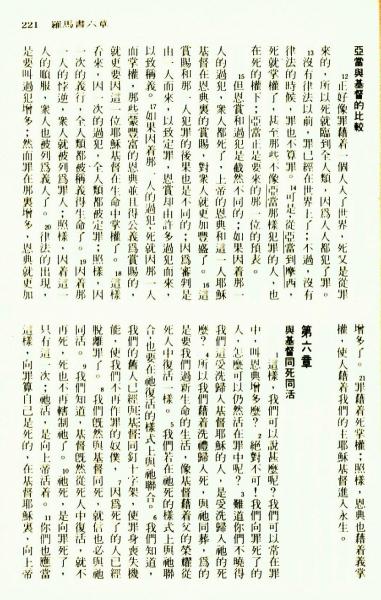 221 羅馬書六章
亞當與基督的比較
12正好像罪藉着一個人入了世界，死又是從罪
來的，所以死就臨到全人類，因爲人人都犯了罪。
13沒有律法以前，罪已經在世界上了；不過，沒有
律法的時候，罪也不算罪。14可是，從亞當到摩西，
死就掌權了，甚至那些不像亞當那樣犯罪的人，也
在死的權下；亞當正是要來的那一位的預表。
15但恩賞和過犯是截然不同的；如果因着那一
人的過犯，衆人都死了，上帝的恩典和這一人耶穌
基督在恩典裏的賞賜，對衆人就更加豐盛了。16這
賞賜和那一人犯罪的後果也是不同的；因爲審判是
由一人而來，以致定罪，恩賞却由許多過犯而來，
以致稱義。17如果因着那一人的過犯，死就因那一人
而掌權，那些領受豐富的恩典並且得公義爲賞賜的，
就更要因這一位耶穌基督在生命中掌權了。18這樣
看來，因一次的過犯，全人類都被定罪；照樣，因
一次的義行，全人類都被稱義得生命了。19因着
一人的悖逆，衆人就被列爲罪人；照樣，因着這一
人的順服，衆人也被列爲義人了。20律法的出現，
是要叫過犯增多；然而罪在那裏增多，恩典就更加
增多了。21罪藉着死掌權；照樣，恩典也藉着義掌
權，使人藉着我們的主耶穌基督進入永生。
第六章
與基督同死同活
1這樣，我們可以說甚麼呢？我們可以常在罪
中，叫恩典增多麼？2絕對不可！我們向罪死了的
人，怎麼可以仍然活在罪中呢？3難道你們不曉得
我們這受洗歸入基督耶穌的人，是受洗歸入祂的死
麼？4所以我們藉着洗禮歸入死，與祂同葬，爲的
是要我們過新生命的生活，像基督藉着父的榮耀從
死人中復活一樣。5我們若在祂死的樣式上與祂聯
合，也要在祂復活的樣式上與祂聯合。6我們知道，
我們的舊人已經與基督同釘十字架，使罪身喪失機
能，使我們不再作罪的奴僕，7因爲死了的人已經
脫離罪了。8我們旣然與基督同死，就信也必與祂
同活。9我們知道，基督旣然從死人中復活，就不
再死，死也不再轄制祂了。10祂死，是向罪死了，
只有這一次；祂活，是向上帝活着。11你們也應當
這樣，向罪算自己是死的，在基督耶穌裏，向上帝